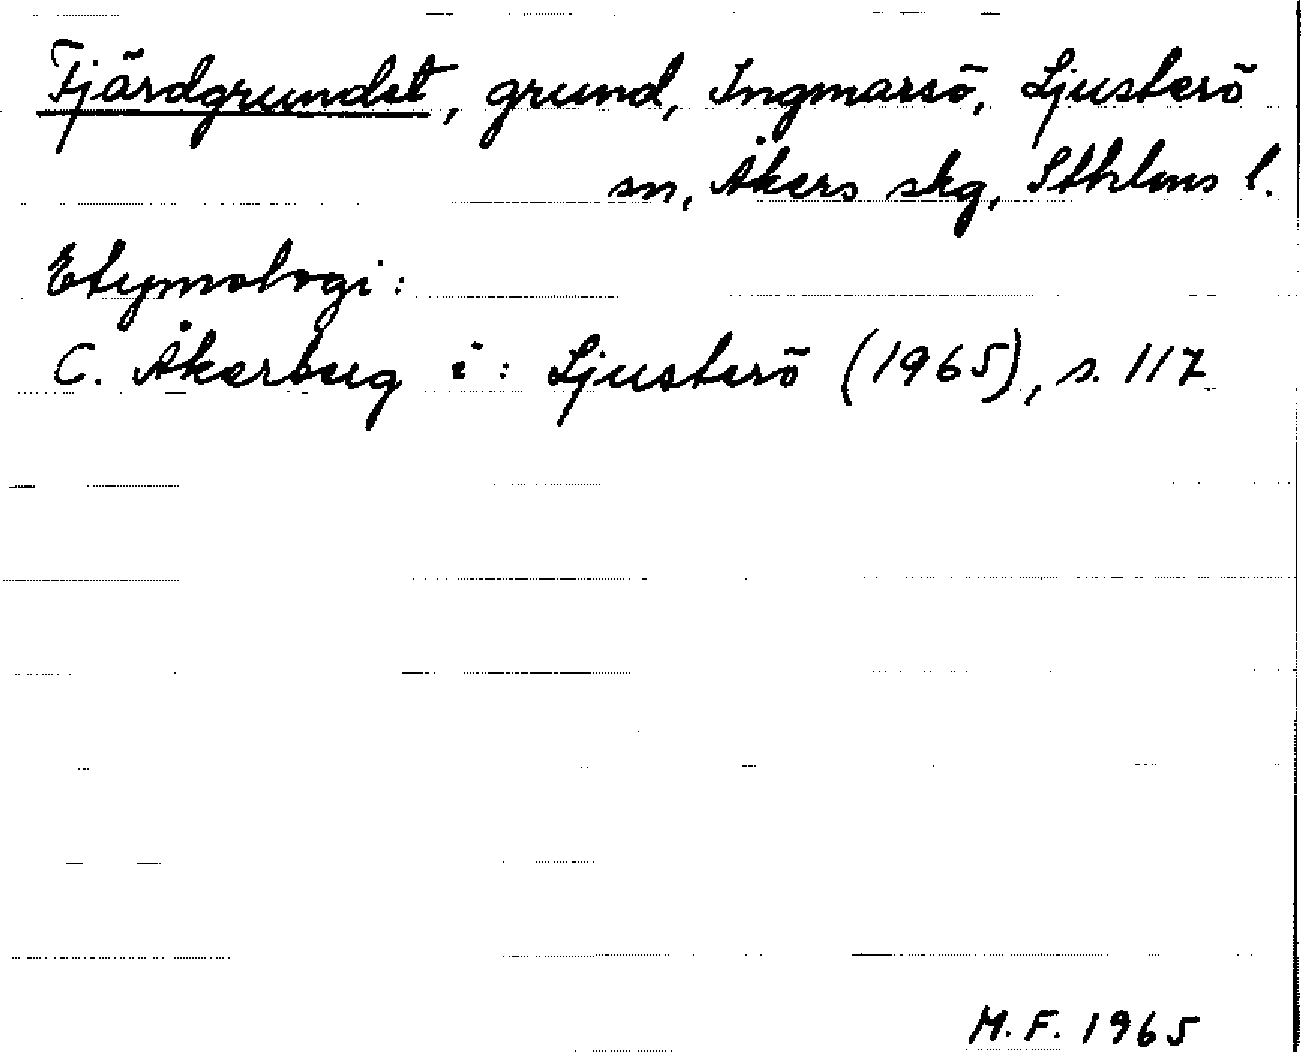 Fjärdgrundet, grund, Ingmarsö, Ljusterö
sn, Åkers skg, Sthlms l.
Etymologi:
C. Åkerberg i: Ljusterö (1965), s. 117
M.F. 1965